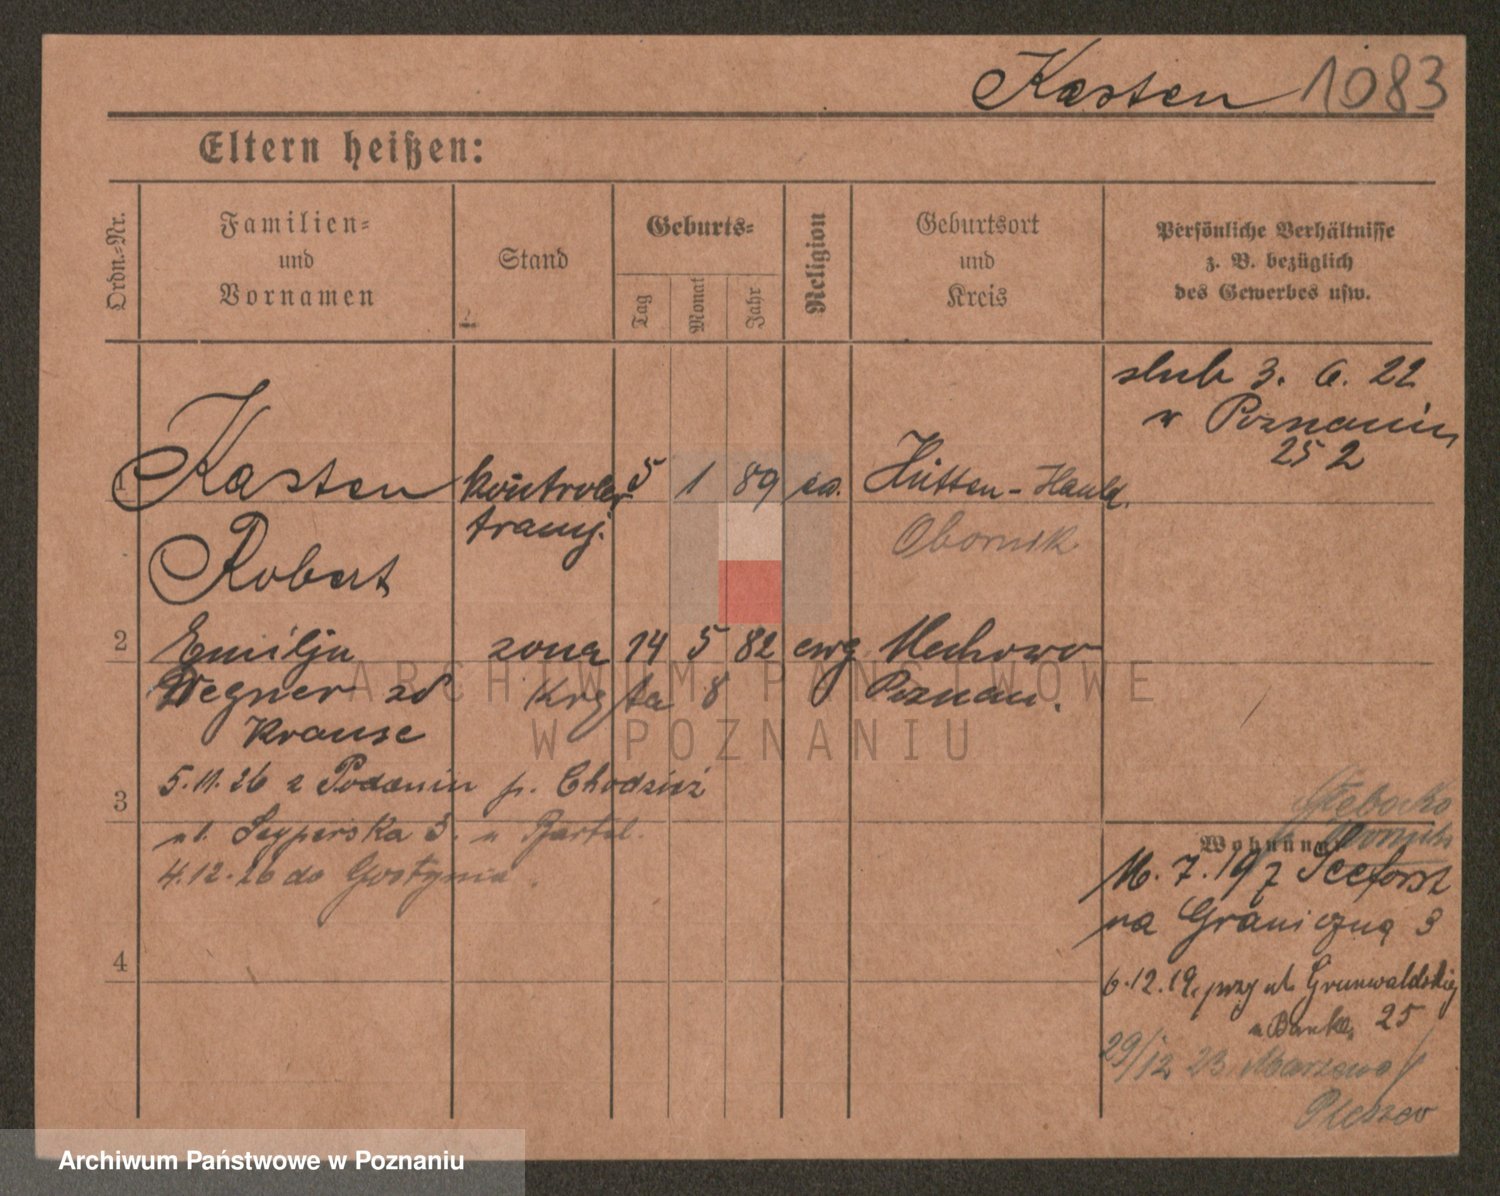 Kasten 1083
Eltern heißen:
Ordn.-Nr.
Familien-
und
Vornamen
Stand
Geburts-
Tag
Monat
Jahr
Religion
Geburtsort
und
Kreis
Persönliche Verhältnisse
z. B. bezüglich
des Gewerbes usw.
slub 3. 6. 22
w Poznaniu
25 2
1 Kasten kontroler 5 1 89 ew. Hütten-Hauld.
tramj. Obornik
Robert
2 Emilja zona 14 5 82 ewg Mechowo
Wegner zd 8 Poznan.
Krause
5.11.26 z Podanin p. Chodzież
3
ul. 3. u Bartel.
4.12.26 do Gostynia
Wohnung
Obornik
16.7.19 z Seeforst
na Graniczną 3
4
6.12.19. przy ul. Grunwaldskiej
25
29/12 23
Pleszew
ARCHIWUM PAŃSTWOWE
W POZNANIU
Archiwum Państwowe w Poznaniu